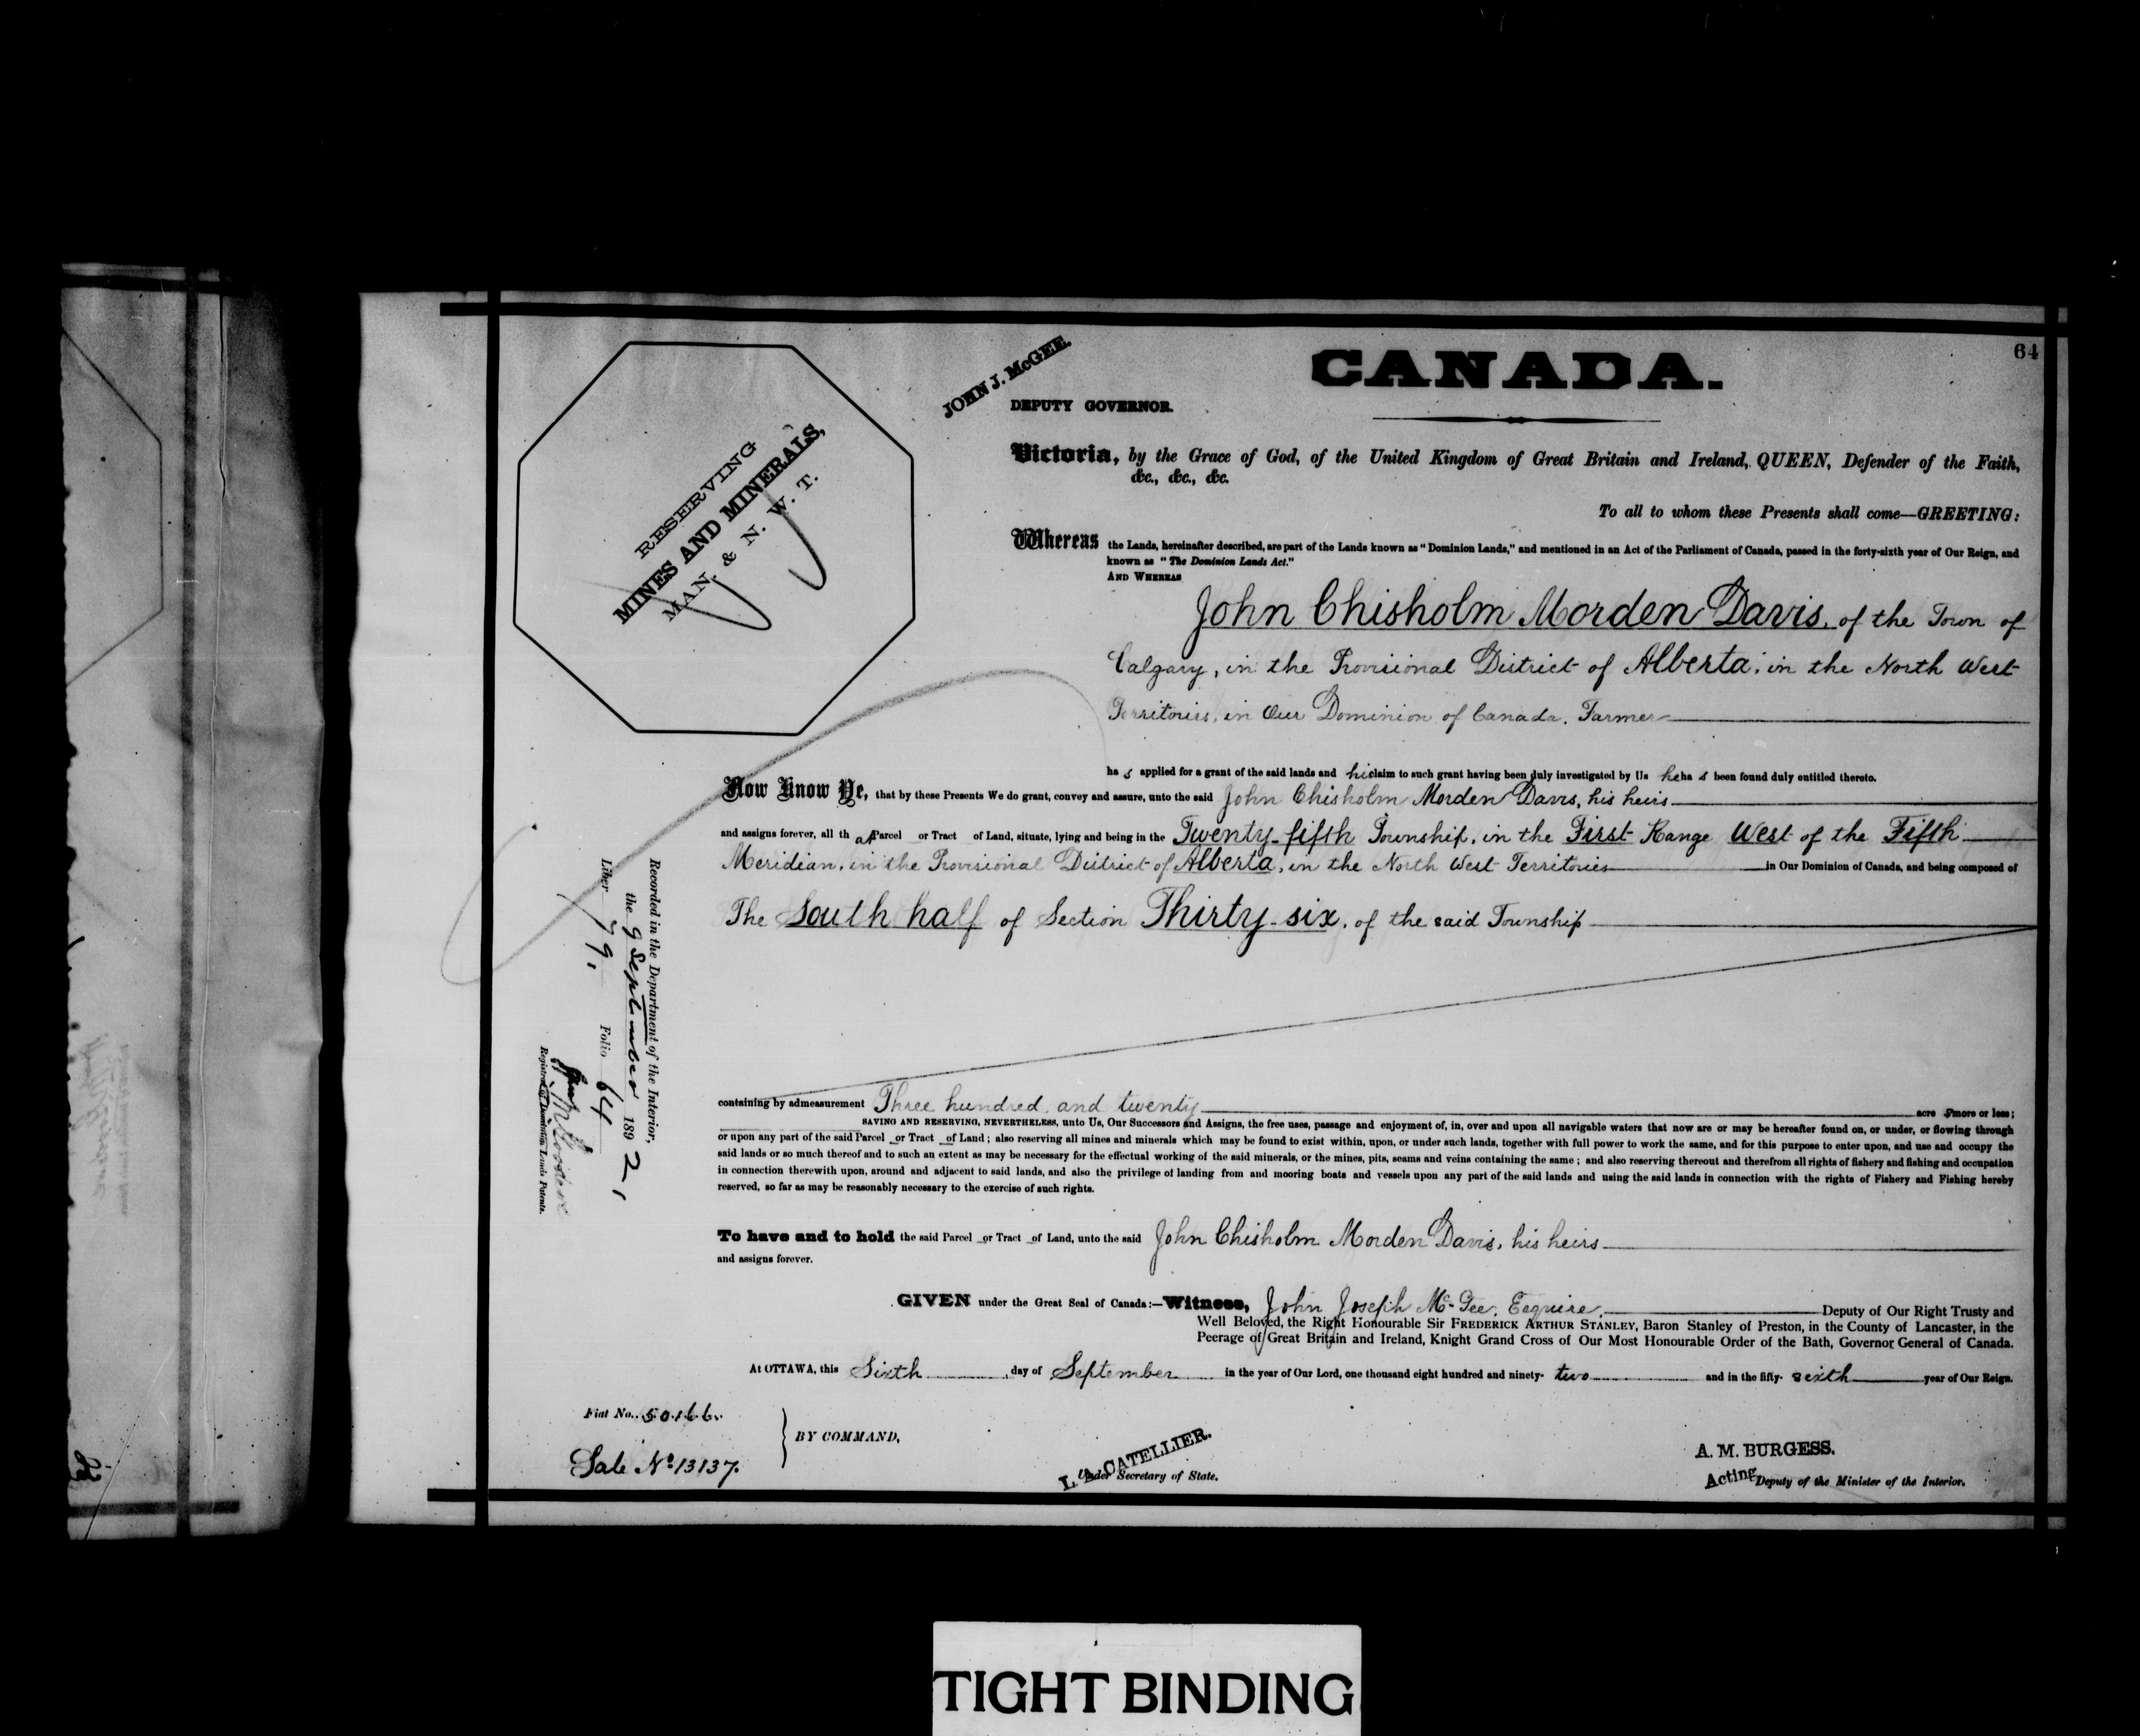 64
CANADA.
JOHN J. McGEE.
DEPUTY GOVERNOR.
RESERVING
MINES AND MINERALS,
MAN. & N. W. T.
Victoria, by the Grace of God, of the United Kingdom of Great Britain and Ireland, QUEEN, Defender of the Faith,
&c., &c., &c.
To all to whom these Presents shall come—GREETING:
Whereas the Lands, hereinafter described, are part of the Lands known as "Dominion Lands," and mentioned in an Act of the Parliament of Canada, passed in the forty-sixth year of Our Reign, and
known as "The Dominion Lands Act."
AND WHEREAS
John Chisholm Morden Davis, of the Town of
Calgary, in the Provisional District of Alberta, in the North West
Territories, in Our Dominion of Canada, Farmer
ha s applied for a grant of the said lands and his claim to such grant having been duly investigated by Us he ha s been found duly entitled thereto.
Now Know Ye, that by these Presents We do grant, convey and assure, unto the said John Chisholm Morden Davis, his heirs
and assigns forever, all th at Parcel or Tract of Land, situate, lying and being in the Twenty-fifth Township, in the First Range West of the Fifth
Meridian, in the Provisional District of Alberta, in the North West Territories in Our Dominion of Canada, and being composed of
The South half of Section Thirty-six, of the said Township
Recorded in the Department of the Interior,
the 9 September 1892,
Liber 79, Folio 64
Registrar of Dominion Lands Patents.
containing by admeasurement Three hundred and twenty acre s more or less;
SAVING AND RESERVING, NEVERTHELESS, unto Us, Our Successors and Assigns, the free uses, passage and enjoyment of, in, over and upon all navigable waters that now are or may be hereafter found on, or under, or flowing through
or upon any part of the said Parcel or Tract of Land; also reserving all mines and minerals which may be found to exist within, upon, or under such lands, together with full power to work the same, and for this purpose to enter upon, and use and occupy the
said lands or so much thereof and to such an extent as may be necessary for the effectual working of the said minerals, or the mines, pits, seams and veins containing the same; and also reserving thereout and therefrom all rights of fishery and fishing and occupation
in connection therewith upon, around and adjacent to said lands, and also the privilege of landing from and mooring boats and vessels upon any part of the said lands and using the said lands in connection with the rights of Fishery and Fishing hereby
reserved, so far as may be reasonably necessary to the exercise of such rights.
To have and to hold the said Parcel or Tract of Land, unto the said John Chisholm Morden Davis, his heirs
and assigns forever.
GIVEN under the Great Seal of Canada:—Witness, John Joseph McGee, Esquire, Deputy of Our Right Trusty and
Well Beloved, the Right Honourable Sir FREDERICK ARTHUR STANLEY, Baron Stanley of Preston, in the County of Lancaster, in the
Peerage of Great Britain and Ireland, Knight Grand Cross of Our Most Honourable Order of the Bath, Governor General of Canada.
At OTTAWA, this Sixth day of September in the year of Our Lord, one thousand eight hundred and ninety- two and in the fifty- sixth year of Our Reign.
Fiat No. 50166.
Sale No 13137.
BY COMMAND,
L. A. CATELLIER.
Under Secretary of State.
A. M. BURGESS.
Acting Deputy of the Minister of the Interior.
TIGHT BINDING